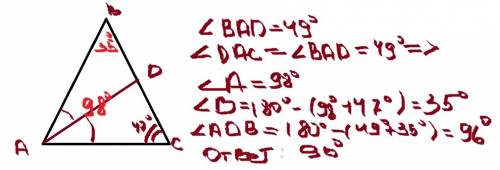 B
35°
D
98°
A
47°
C
∠BAD=49°
∠DAC=∠BAD=49°=>
∠A=98°
∠B=180°-(98°+47°)=35°
∠ADB=180°-(49°+35°)=96°
Ответ: 96°